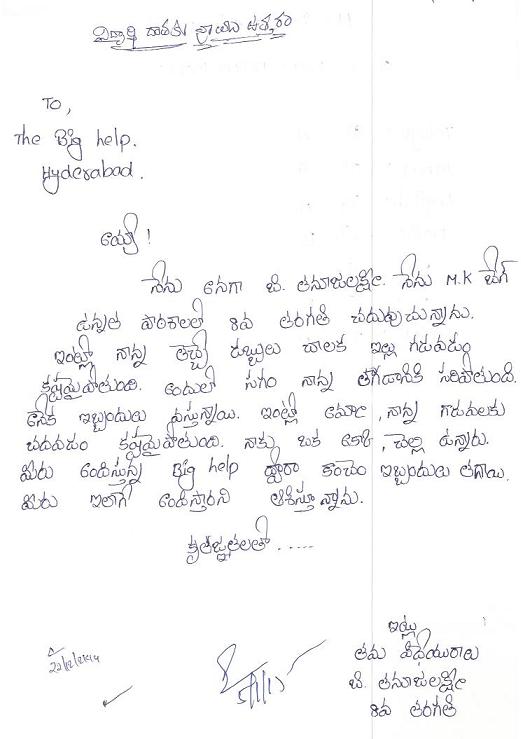 విద్యార్థి దాతకు వ్రాయు ఉత్తరం
To,
The Big help.
Hyderabad.
అయ్యా!
నేను అనగా బి. తనూజలక్ష్మి. నేను M.K బేగ్
ఉన్నత పాఠశాలలో 8వ తరగతి చదువుచున్నాను.
ఇంట్లో నాన్న తెచ్చే డబ్బులు చాలక ఇల్లు గడవడం
కష్టమైపోతుంది. అందులో సగం నాన్న తాగడానికే సరిపోతుంది.
అనేక ఇబ్బందులు వస్తున్నాయి. ఇంట్లో అమ్మా, నాన్న గొడవలకు
చదవడం కష్టమైపోతుంది. నాకు ఒక అక్క, చెల్లి ఉన్నారు.
మీరు అందిస్తున్న Big help ద్వారా కొంచెం ఇబ్బందులు తగ్గాయి.
మీరు ఇలాగే అందిస్తారని ఆశిస్తూన్నాను.
కృతజ్ఞతలతో .....
ఇట్లు
తమ విధేయురాలు
బి. తనూజలక్ష్మి
8వ తరగతి